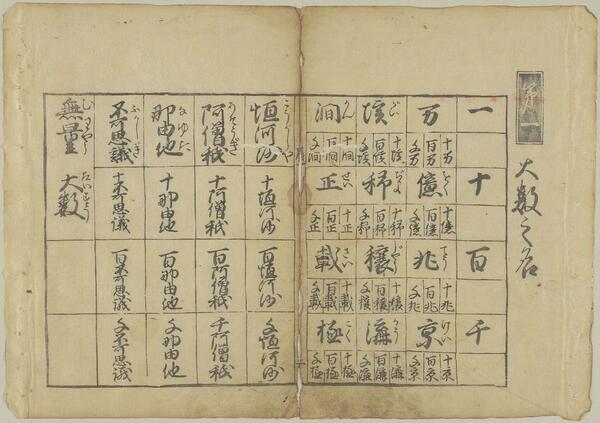 第一
大数之名
一
十
百
千
万
十万
百万
千万
億
おく
十億
百億
千億
兆
てう
十兆
百兆
千兆
京
けい
十京
百京
千京
垓
がい
十垓
百垓
千垓
秭
じよ
十秭
百秭
千秭
穣
十穣
百穣
千穣
溝
かう
十溝
百溝
千溝
澗
かん
十澗
百澗
千澗
正
せい
十正
百正
千正
載
さい
十載
百載
千載
極
ごく
十極
百極
千極
恒河沙
十恒河沙
百恒河沙
千恒河沙
阿僧祇
あそうぎ
十阿僧祇
百阿僧祇
千阿僧祇
那由他
なゆた
十那由他
百那由他
千那由他
不可思議
ふかしぎ
十不可思議
百不可思議
千不可思議
無量
むりやう
大数